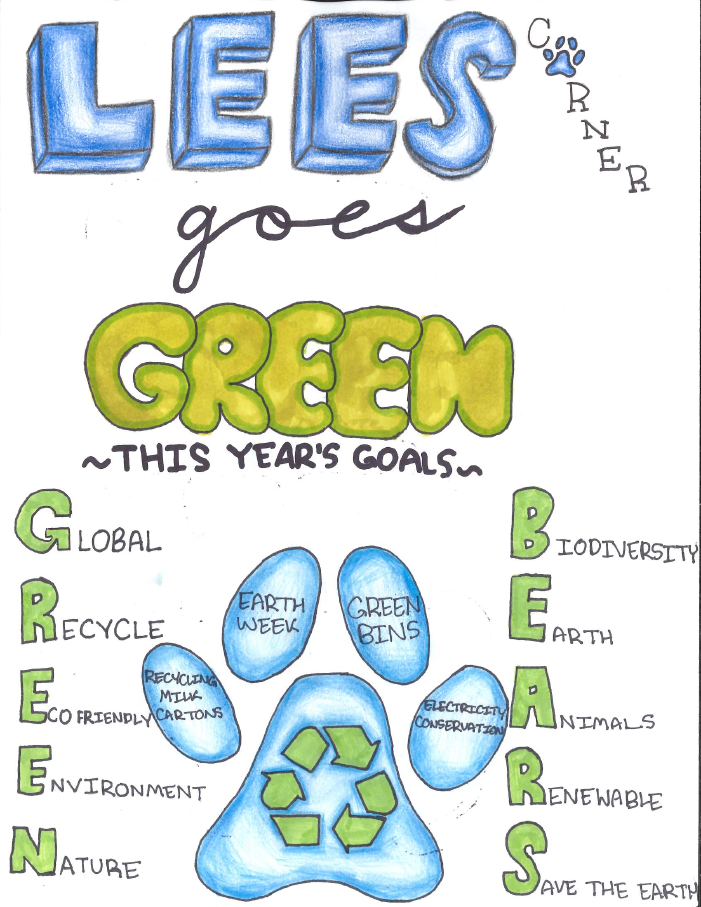 LEES
C RNER
goes
GREEN
~THIS YEAR'S GOALS~
GLOBAL
RECYCLE
ECO FRIENDLY
ENVIRONMENT
NATURE
RECYCLING
MILK
CARTONS
EARTH
WEEK
GREEN
BINS
ELECTRICITY
CONSERVATION
BIODIVERSITY
EARTH
ANIMALS
RENEWABLE
SAVE THE EARTH